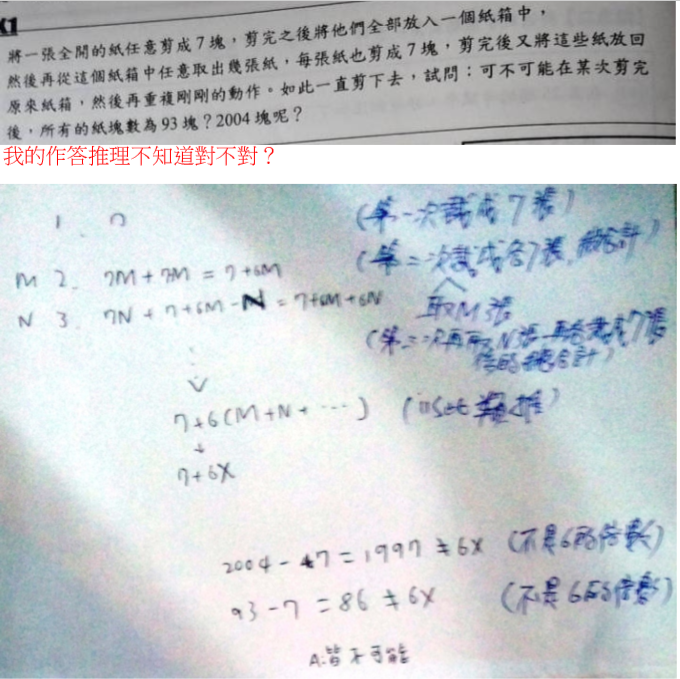 將一張全開的紙任意剪成7塊,剪完之後將他們全部放入一個紙箱中,
然後再從這個紙箱中任意取出幾張紙,每張紙也剪成7塊,剪完後又將這些紙放回
原來紙箱,然後再重複剛剛的動作。如此一直剪下去,試問:可不可能在某次剪完
後,所有的紙塊數為93塊?2004塊呢?
我的作答推理不知道對不對?
1. 7 (第一次 成7張)
M 2. = 7+6M (第二次 成各7張, 總合計)
取M張
N 3. 7N + 7+6M - N = 7+6M+6N
(第三次再取N張 再各 成7張
後的總合計)
7+6(M+N+⋯) (以此類推)
7+6X
2004 - 7 = 1997 ≠ 6X (不是6的倍數)
93 - 7 = 86 ≠ 6X (不是6的倍數)
A:皆不可能